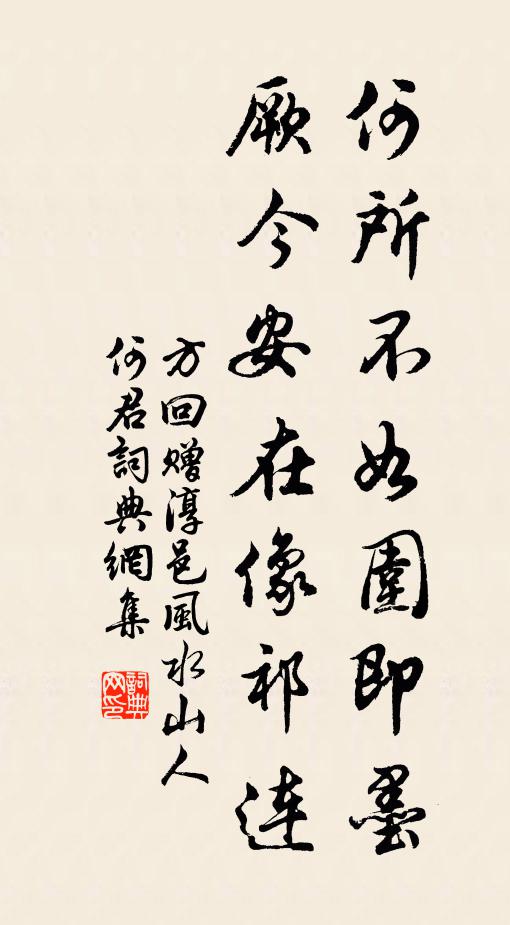 何所不如圍即墨
厥今安在像祁連
方回贈淳邑風水山人
何君詞典網集
詞典網印